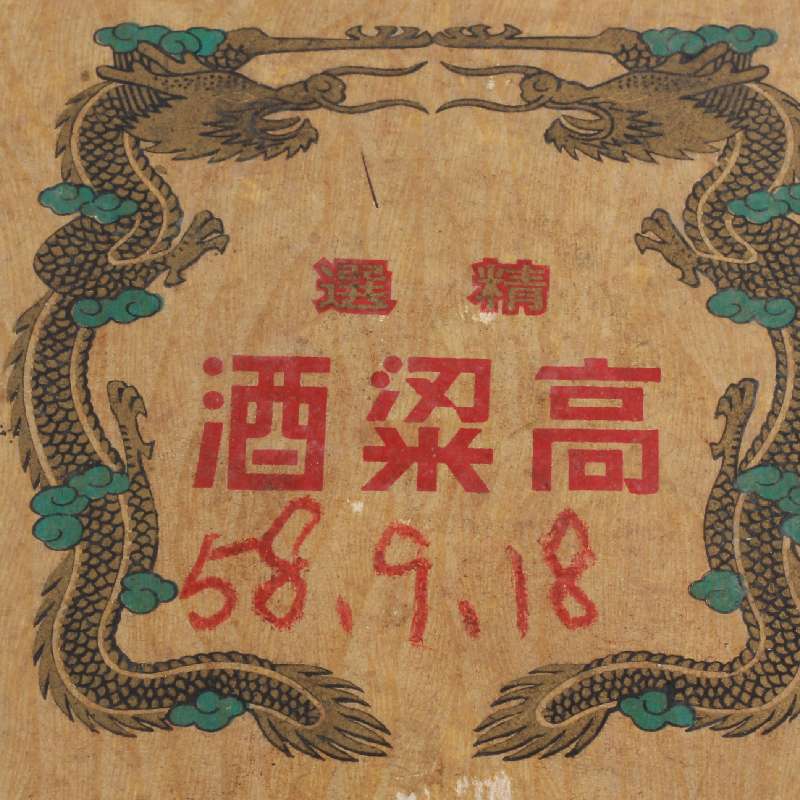 精選
高粱酒
58.9.18